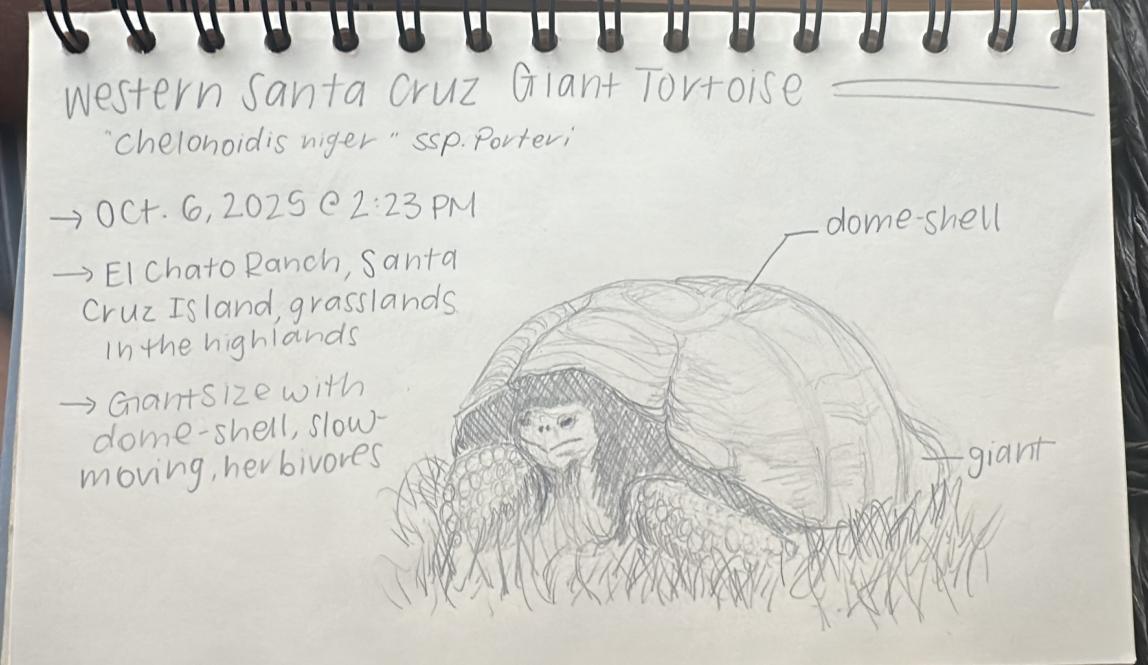 Western Santa Cruz Giant Tortoise
"Chelonoidis niger" ssp. Porteri
→ Oct. 6, 2025 @ 2:23 PM
dome-shell
→ El Chato Ranch, Santa
Cruz Island, grasslands
in the highlands
→ Giant size with
dome-shell, slow-
moving, herbivores
giant